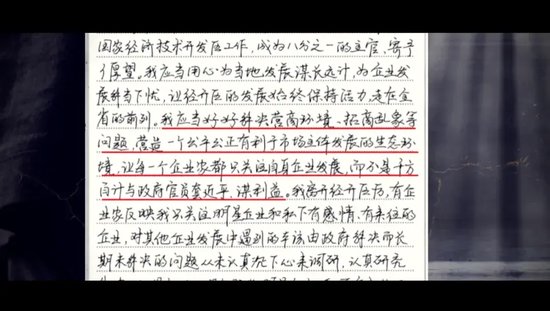 国家经济技术开发区工作,成为八分之一的主官,寄予
了厚望。我应当用心为当地发展谋长远计,为企业发
展解当下忧,让经开区的发展始终保持活力走在全
省的前列,我应当好好解决营商环境、招商乱象等
问题,营造一个公平公正有利于市场主体发展的生态环
境,让每一个企业家都只关注自身企业发展,而不是千方
百计与政府官员套近乎、谋利益。我离开经开区后,有企
业家反映我只关注明星企业和私下有感情、有来往的
企业,对其他企业发展中遇到的本该由政府解决而长
期未解决的问题从未认真沉下心来调研,认真研究